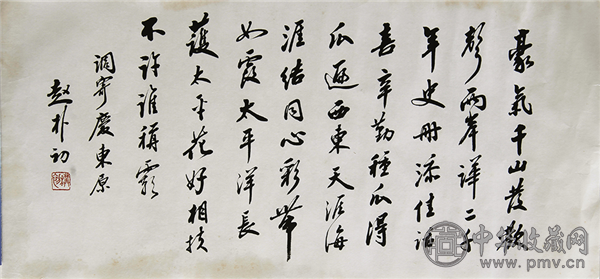 豪氣千山發歡
聲兩岸譁二千
年史册添佳話
喜辛勤種瓜得
瓜遍西東天涯海
涯結同心彩帶
如霞太平洋長
護太平花好相扶
不許誰稱霸
調寄慶東原
趙朴初
中华收藏网
www.pmv.cn